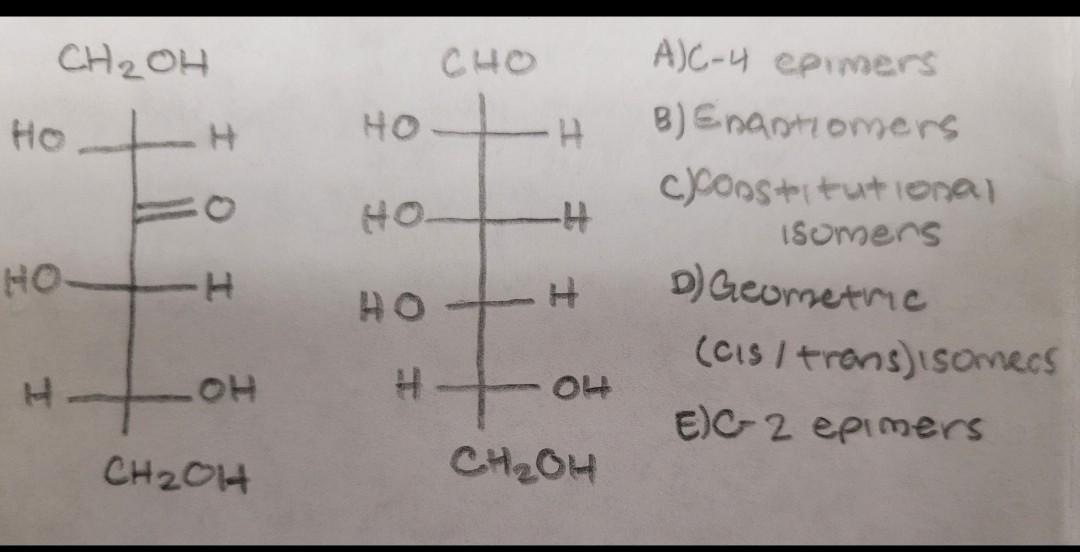 CH2OH CHO A)C-4 epimers
HO H HO H B)Enantiomers
=O HO H C)Constitutional
isomers
HO H HO H D)Geometric
(cis/trans)isomecs
H OH H OH E)C-2 epimers
CH2OH CH2OH